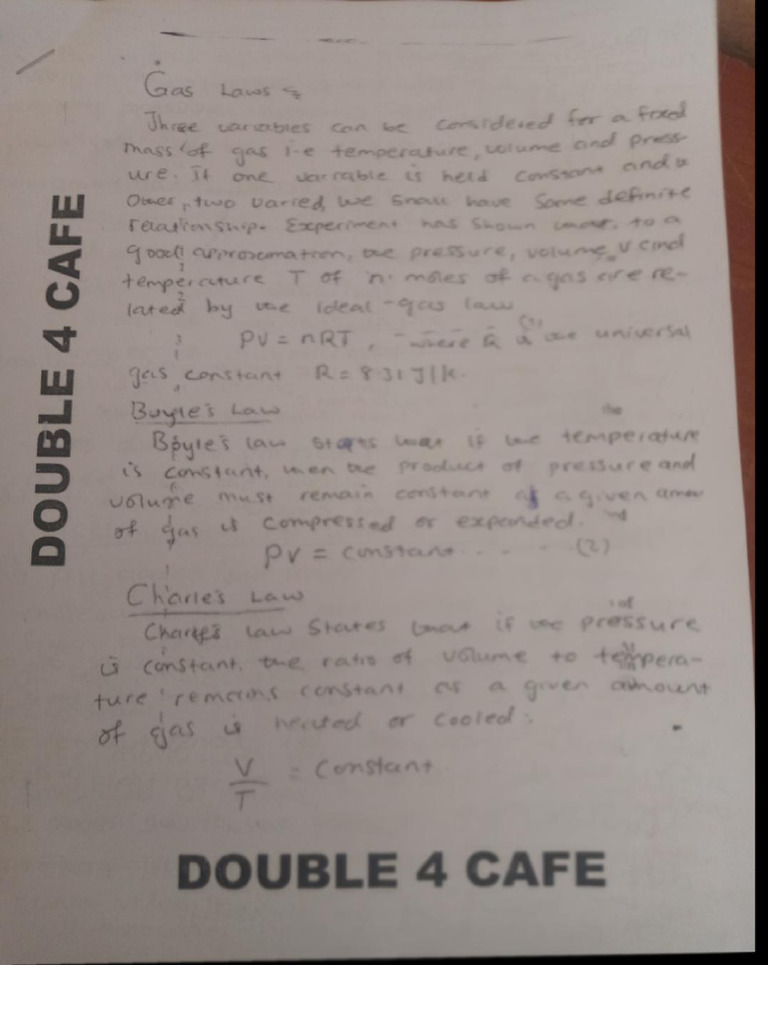 Gas Laws
Three variables can be considered for a fixed
mass of gas i.e temperature, volume and press-
ure. If one variable is held constant and
other, two varied, we shall have some definite
relationship. Experiment has shown that, to a
good approximation, the pressure, volume, V and
temperature T of n. moles of a gas are re-
lated by the ideal-gas law
PV = nRT, where R is the universal (1)
gas constant R = 8.31 J/k.
Boyle's Law
Boyle's law states that if the temperature
is constant, then the product of pressure and
volume must remain constant as a given
of gas is compressed or expanded.
PV = constant - - - - (2)
Charle's Law
Charle's law States that if the pressure
is constant. the ratio of volume to tempera-
ture remains constant as a given amount
of gas is heated or cooled:
V/T = Constant
DOUBLE 4 CAFE
DOUBLE 4 CAFE